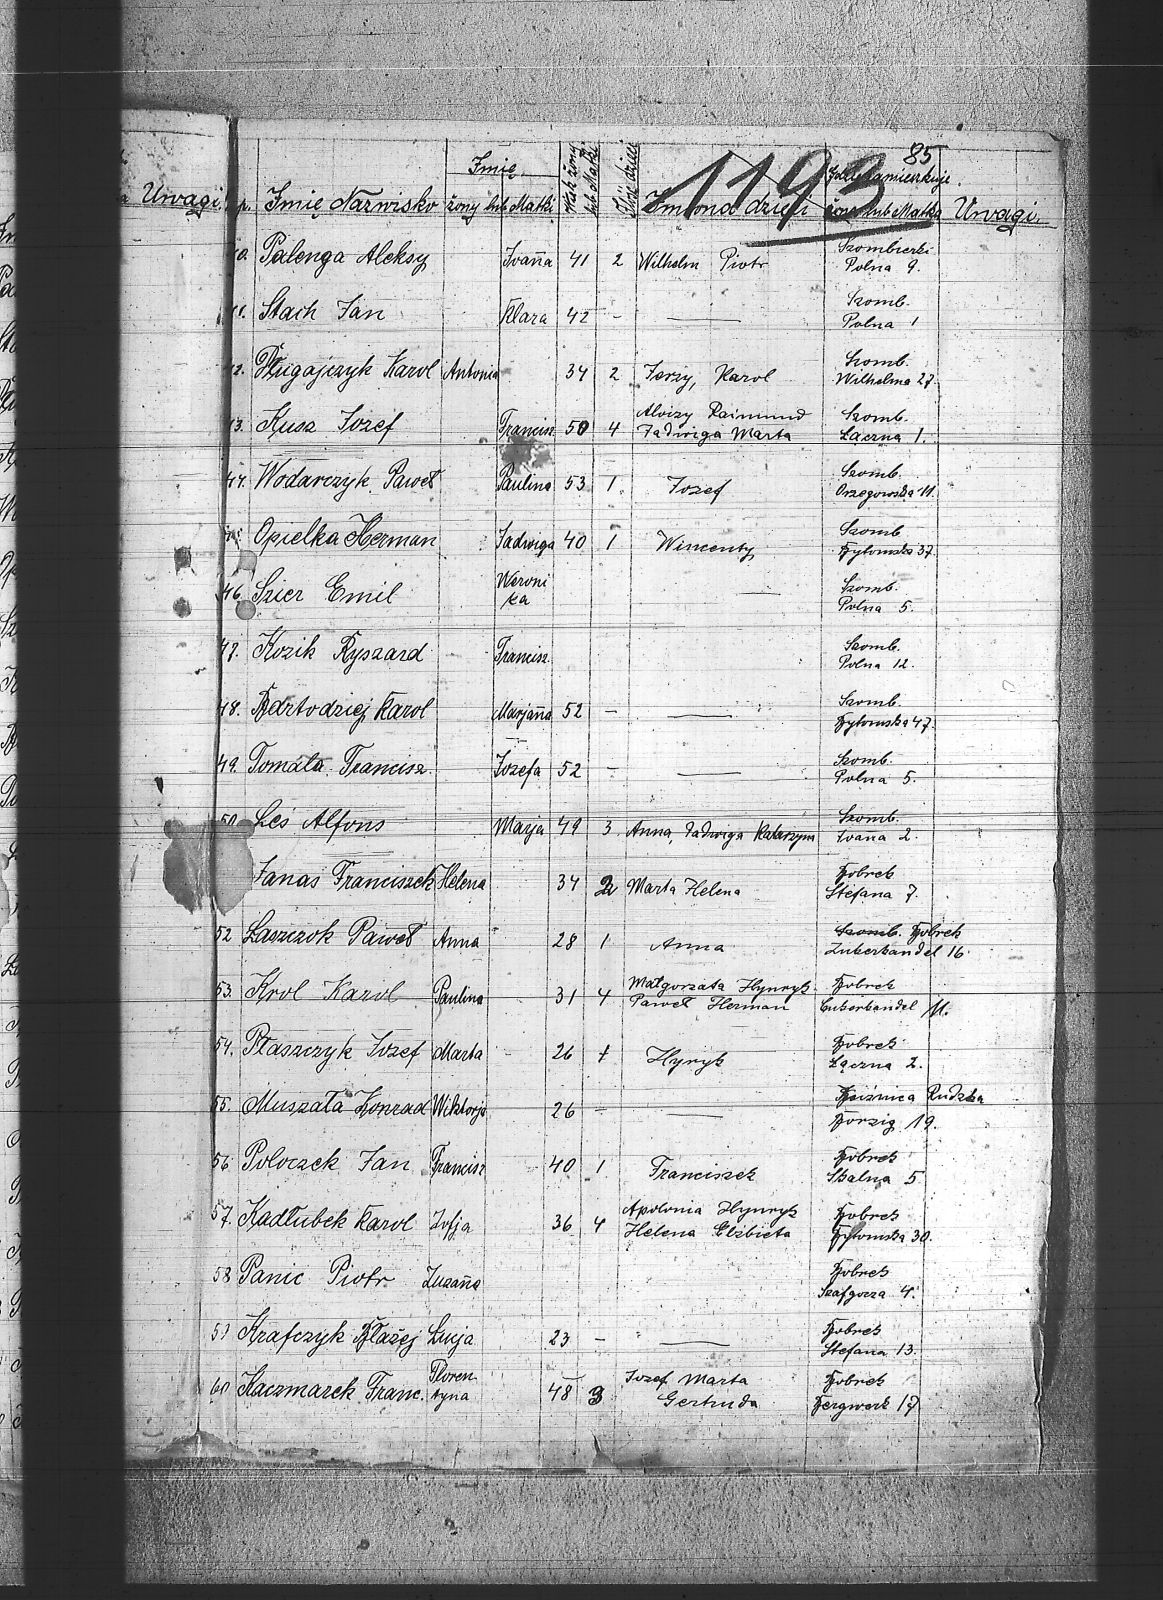 85
1193
Imię
Wiek żony lub Matki
Ilość dzieci
Uwagi
Imię Nazwisko żony lub Matki Imiona dzieci Gdzie zamieszkuje żona lub Matka Uwagi.
40. Palenga Aleksy Joanna 41 2 Wilhelm Piotr Szombierki
Polna 9.
41. Stach Jan Klara 42 - — Szomb.
Polna 1
42. Długajczyk Karol Antonia 34 2 Jerzy, Karol Szomb.
Wilhelma 27.
43. Kusz Jozef Francisz 50 4 Aloizy Raimund Szomb.
Jadwiga Marta Łaczna 1.
44. Wodarczyk Paweł Paulina 53 1. Jozef Szomb.
Orzegowska 11.
45. Opielka Herman Jadwiga 40 1 Wincenty Szomb
Bytomska 37
46. Szier Emil Weroni — Szomb.
ka Polna 5.
47. Kozik Ryszard Francisz. Szomb.
Polna 12.
48. Karol Marjanna 52 - — Szomb.
Bytomska 47.
49. Tomala Francisz. Jozefa 52 - — Szomb.
Polna 5.
50. Leś Alfons Marja 49 3 Anna, Jadwiga Katarzyna Szomb.
Ivana 2.
Janas Franciszek Helena 34 2 Marta, Helena Bobrek
Stefana 7.
52 Łaszczok Paweł Anna 28 1 Anna Szomb. Bobrek
Zukerhandel 16.
53. Krol Karol Paulina 31 4 Małgorzata Hynryk Bobrek
Paweł Herman Cukerhandel 11.
54. Płaszczyk Jozef Marta 26 1 Hynryk Bobrek
Łączna 2.
55. Muszala Konrad Wiktorja 26 - — Rudzka
Borzig 19.
56 Poloczek Jan Francisz 40 1 Franciszek Bobrek
Skalna 5
57. Kadłubek Karol Zofja 36 4 Apolonia Hynryk Bobrek
Helena Elżbieta Bytomska 30.
58 Panic Piotr Zuzanna Bobrek
4.
59 Krafczyk Błażej Łucja 23 - — Bobrek
Stefana 13.
60 Kaczmarek Franc. Floren- 48 3 Jozef Marta Bobrek
tyna Gertruda Bergwerk 17